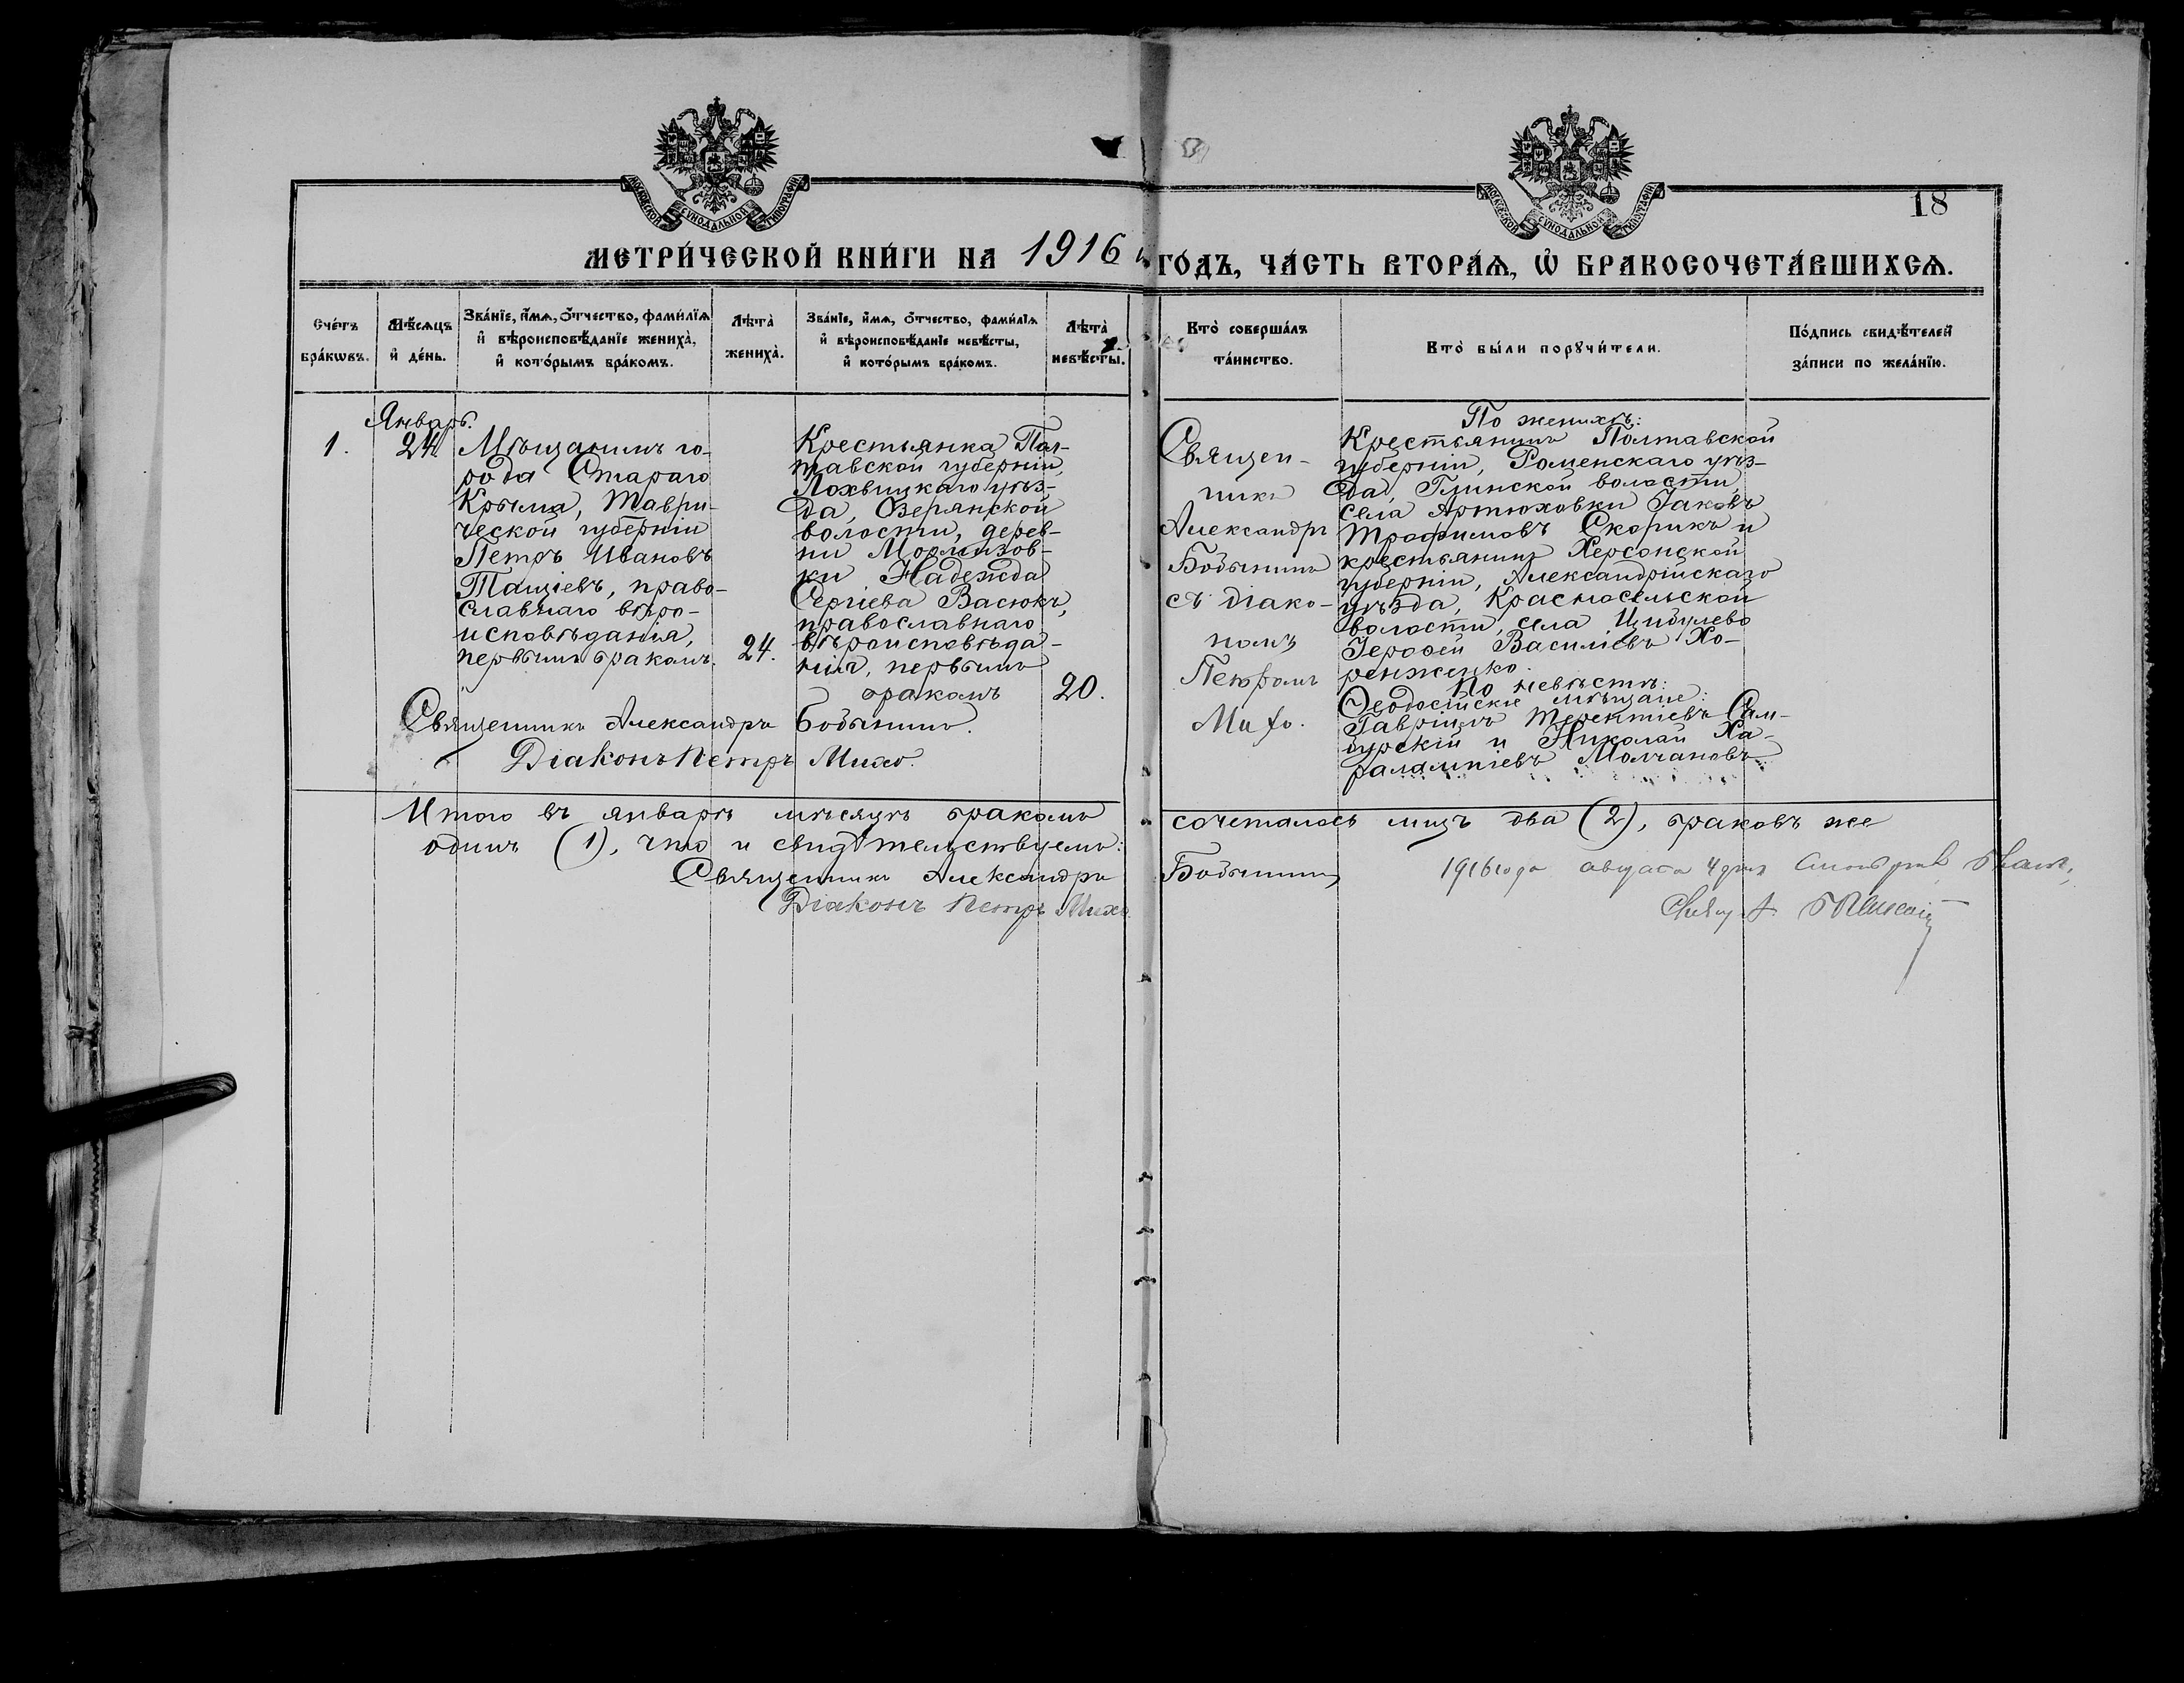 МОСКОВСКОЙ СѴНОДАЛЬНОЙ ТИПОГРАФІИ
МОСКОВСКОЙ СѴНОДАЛЬНОЙ ТИПОГРАФІИ
18
МЕТРИ́ЧЕСКОЙ КНИ́ГИ НА 1916 ГО́ДЪ, ЧА́СТЬ ВТОРА́Ѧ, Ѽ БРАКОСОЧЕТА́ВШИХСѦ.
Сче́тъ
бра́кѡвъ.
Мѣ́сѧцъ
и҆ де́нь.
Зва́нїе, и҆́мѧ, о҆́тчество, фами́лїѧ
и҆ вѣроисповѣ́данїе жениха̀,
и҆ кото́рымъ бра́комъ.
Лѣта̀
жениха̀.
Зва́нїе, и҆́мѧ, о҆́тчество, фами́лїѧ
и҆ вѣроисповѣ́данїе невѣ́сты,
и҆ кото́рымъ бра́комъ.
Лѣта̀
невѣ́сты.
Кто̀ соверша́лъ
та́инство.
Кто̀ бы́ли порꙋчи́тели.
По́дпись свидѣ́телей
за́писи по жела́нїю.
Январь.
1.
24
Мѣщанинъ го-
рода Стараго
Крыма, Таври-
ческой губерніи
Петръ Ивановъ
Тащіевъ, право-
славнаго вѣро-
исповѣданія,
первымъ бракомъ.
24.
Крестьянка Пол-
тавской губерніи,
Лохвицкаго уѣз-
да, Озерянской
волости, дерев-
ни Мормизов-
ки Надежда
Сергіева Васюкъ,
православнаго
вѣроисповѣда-
нія, первымъ
бракомъ
20.
Священ-
никъ
Александръ
Бодынинъ
съ діако-
номъ
Петромъ
Михо.
По женихѣ:
Крестьянинъ Полтавской
губерніи, Роменскаго уѣз-
да, Глинской волости,
села Артюховки Іаковъ
Трофимовъ Скорикъ и
крестьянинъ Херсонской
губерніи, Александрійскаго
уѣзда, Красносельской
волости, села Цибулево
Іерофей Василіевъ Хо-
ренженко.
По невѣстѣ:
Ѳеодосійскіе мѣщане:
Гавріилъ Терентіевъ Сам-
бурскій и Николай Ха-
ралампіевъ Молчановъ
Священникъ Александръ Бодынинъ.
Діаконъ Петръ Михо.
Итого въ январѣ мѣсяцѣ бракомъ сочеталось лицъ два (2), браковъ же
одинъ (1), что и свидѣтельствуемъ:
Священникъ Александръ Бодынинъ
Діаконъ Петръ Михо.
1916 года августа 4 дня